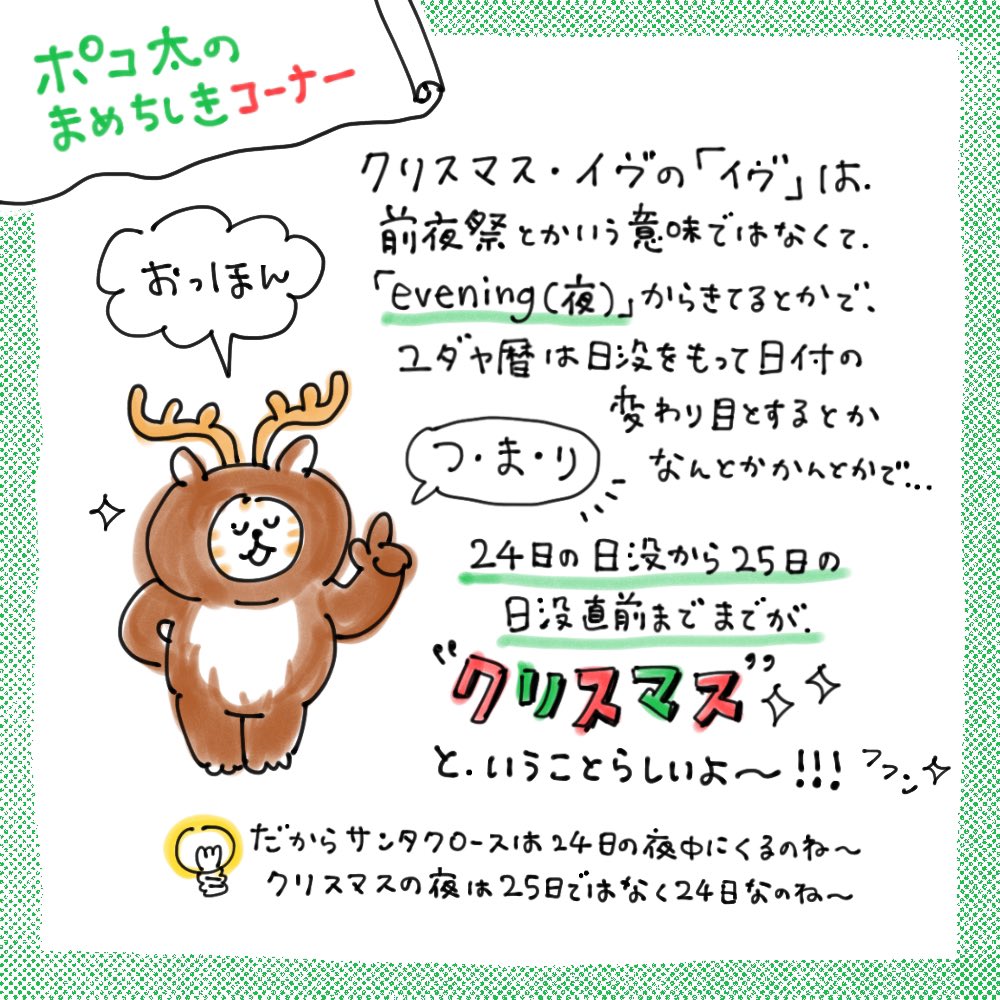 ポコ太の
まめちしきコーナー
おっほん
クリスマス・イヴの「イヴ」は.
前夜祭とかいう意味ではなくて.
「evening(夜)」からきてるとかで、
ユダヤ暦は日没をもって日付の
変わり目とするとか
なんとかかんとかで...
つ・ま・り
24日の日没から25日の
日没直前までまでが.
“クリスマス”
と.いうことらしいよ〜!!!
フフン
だからサンタクロースは24日の夜中にくるのね〜
クリスマスの夜は25日ではなく24日なのね〜